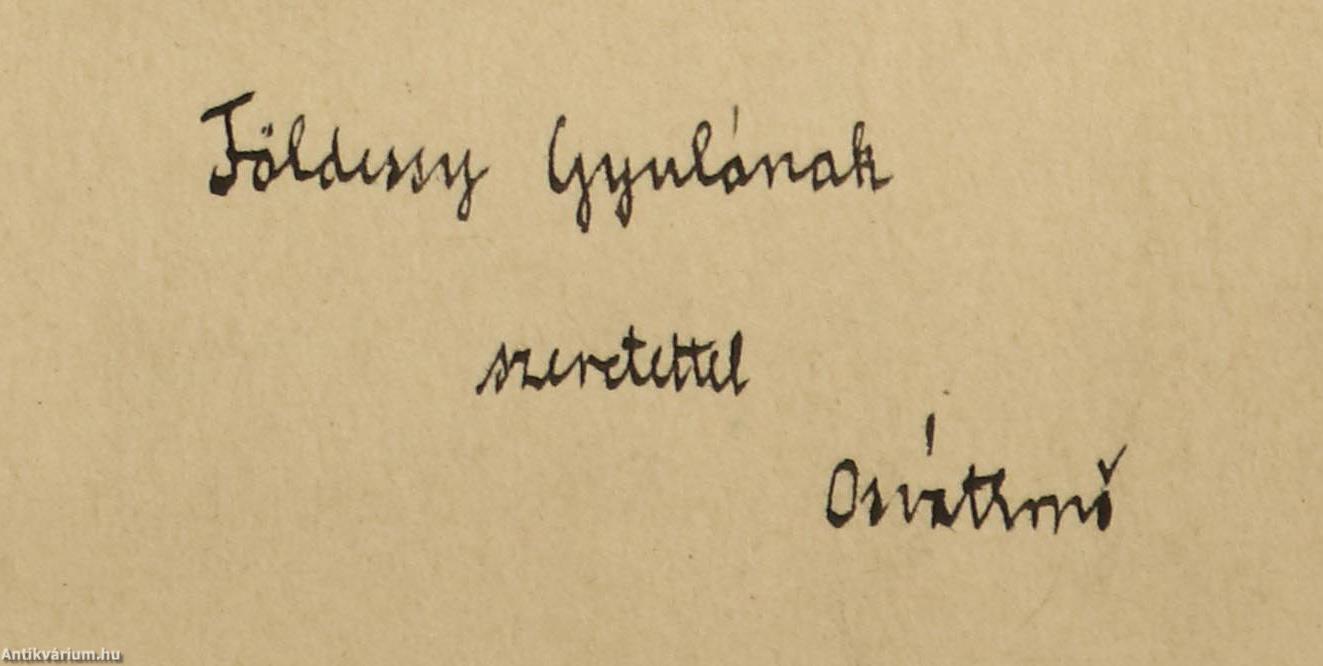 Földessy Gyulának
szeretettel
Osvát Ernő
Antikvárium.hu